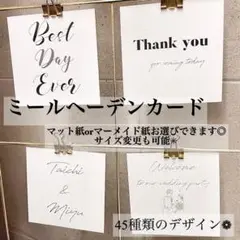 Best
Day
Ever
Thank you
for coming today
ミールヘーデンカード
マット紙orマーメイド紙お選びできます◎
サイズ変更も可能✳︎
Taichi
&
Miyu
Welcome
to our wedding party
45種類のデザイン❁